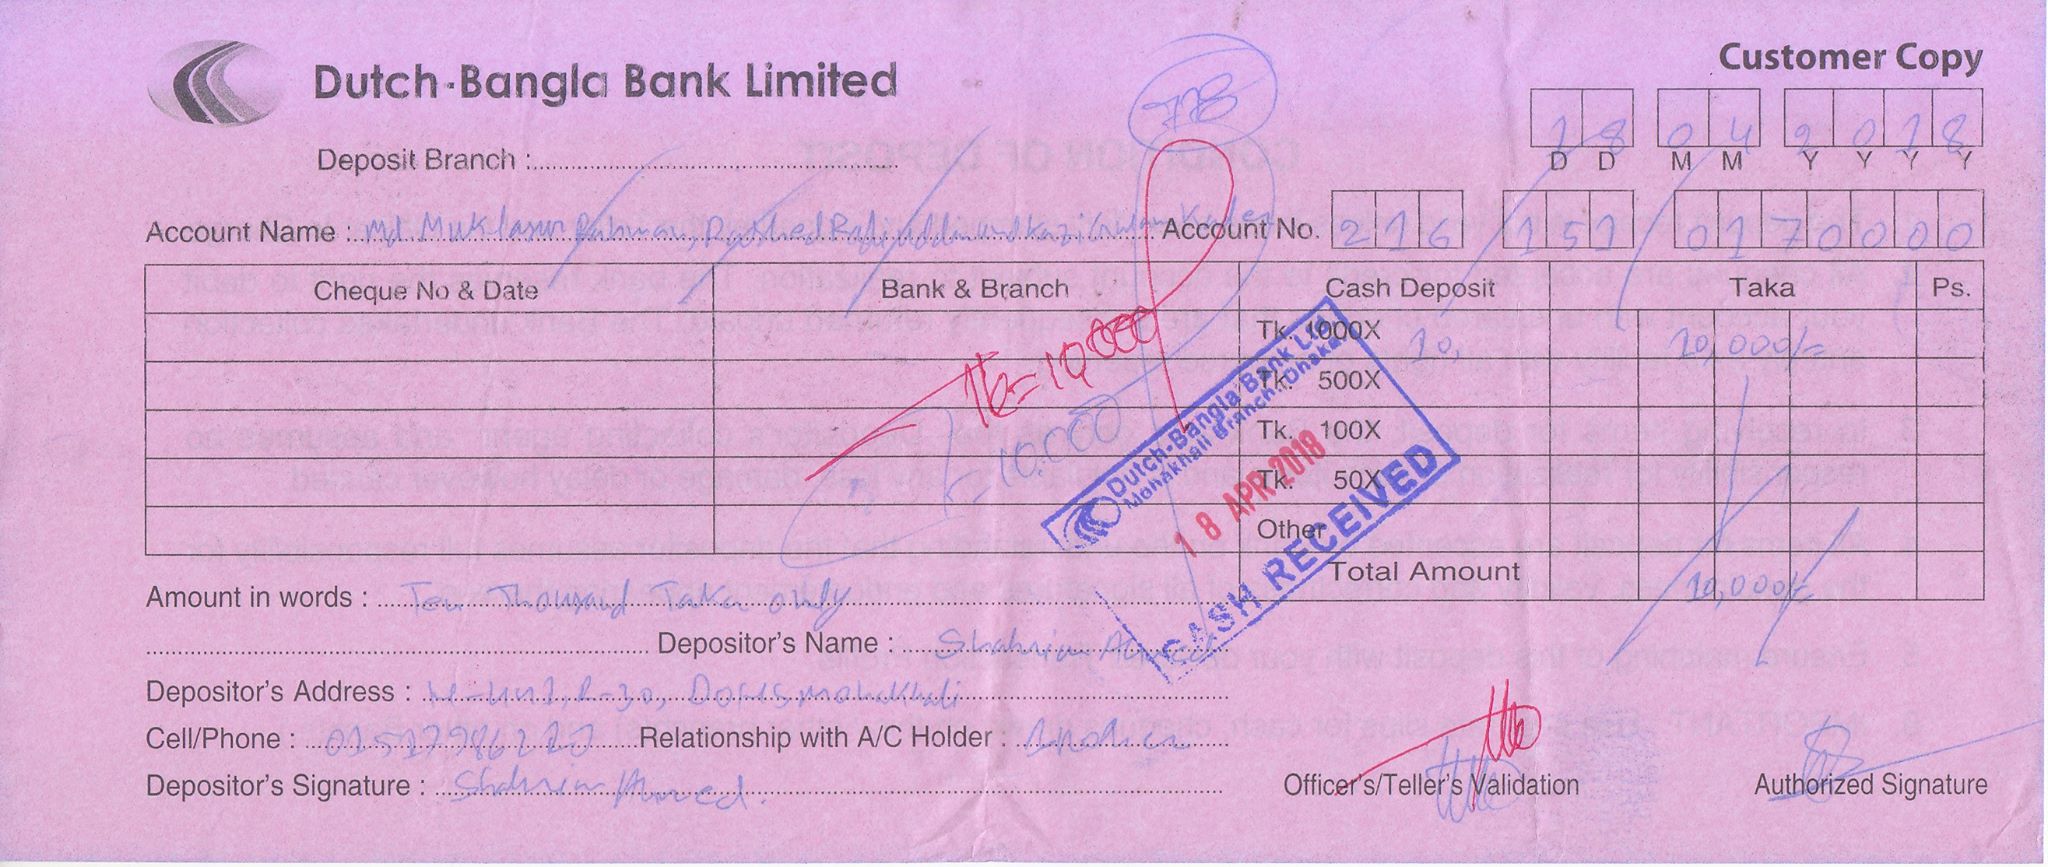 Dutch-Bangla Bank Limited
Customer Copy
778
18 04 2018
D D M M Y Y Y Y
Deposit Branch :
Account Name : Md. Muklasur Rahman, Rashed Rafiuddin and Kazi Gulam Kader Account No. 216 151 0170000
Cheque No & Date Bank & Branch Cash Deposit Taka Ps.
Tk. 1000X 10, 10,000/=
Tk. 500X
Tk. 100X
Tk. 50X
Other
Total Amount 10,000/=
Tk = 10,000
= 10,000
Dutch-Bangla Bank Ltd.
Mohakhali Branch, Dhaka
18 APR 2018
CASH RECEIVED
Amount in words : Ten Thousand Taka only
Depositor's Name : Shahriar Ahmed
Depositor's Address : DOHS, Mohakhali
Cell/Phone : 01517986220 Relationship with A/C Holder :
Depositor's Signature : Shahriar Ahmed.
Officer's/Teller's Validation Authorized Signature